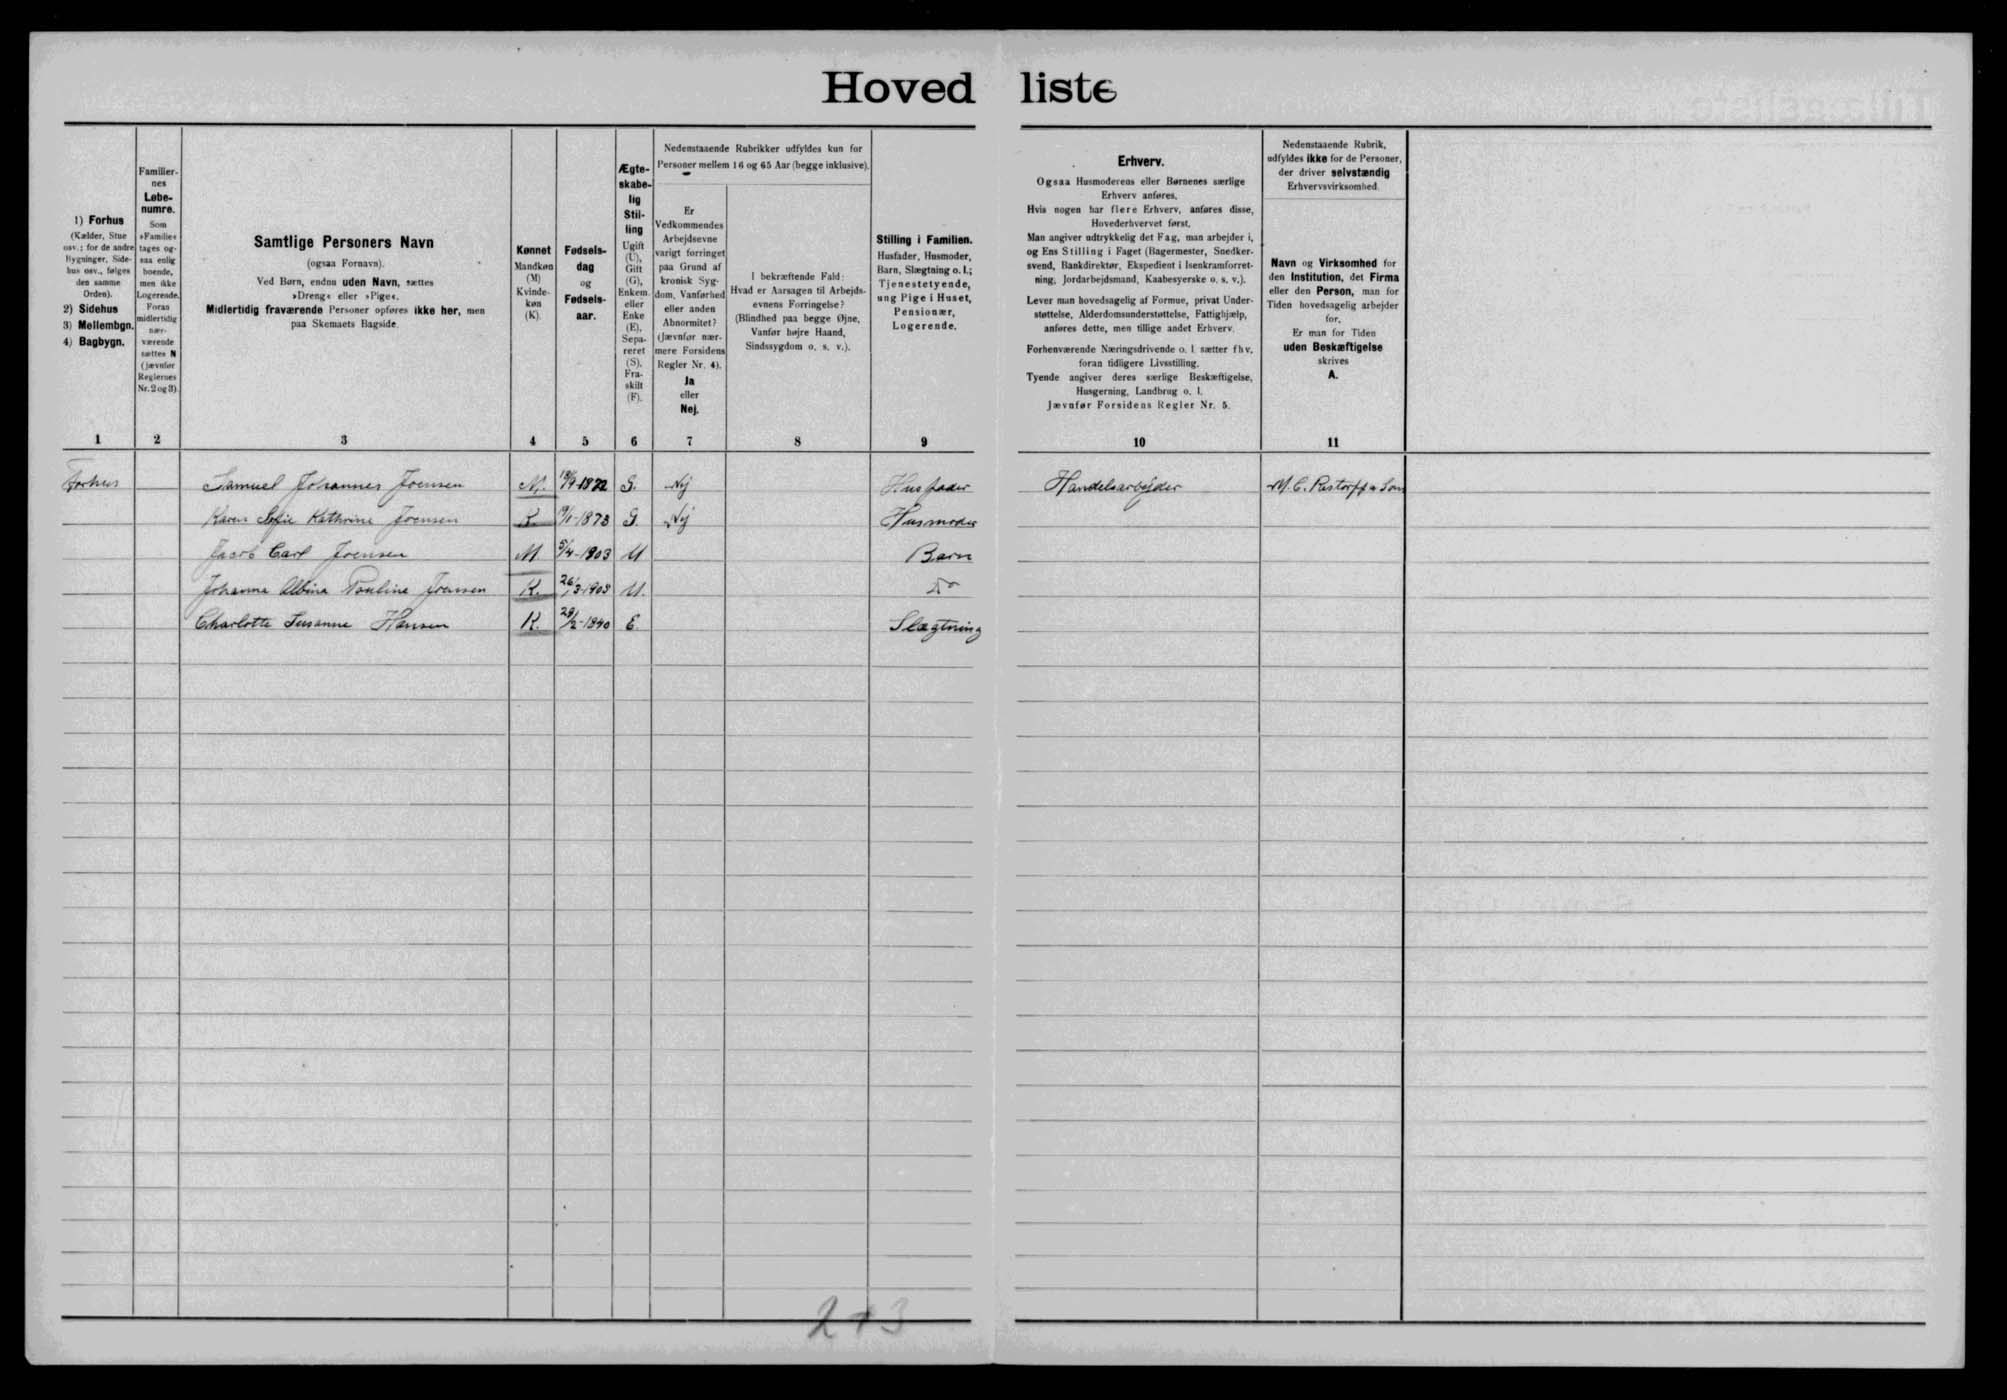 Hovedliste
1) Forhus
(Kælder, Stue
osv.; for de andre
Bygninger, Side-
hus osv., følges
den samme
Orden).
2) Sidehus
3) Mellembgn.
4) Bagbygn.
1
Familier-
nes
Løbe-
numre.
Som
»Familie«
tages og-
saa enlig
boende,
men ikke
Logerende.
Foran
midlertidig
nær-
værende
sættes N
(jævnfør
Reglernes
Nr. 2 og 3).
2
Samtlige Personers Navn
(ogsaa Fornavn).
Ved Børn, endnu uden Navn, sættes
»Dreng« eller »Pige«.
Midlertidig fraværende Personer opføres ikke her, men
paa Skemaets Bagside.
3
Kønnet
Mandkøn
(M)
Kvinde-
køn
(K).
4
Fødsels-
dag
og
Fødsels-
aar.
5
Ægte-
skabe-
lig
Stil-
ling
Ugift
(U),
Gift
(G),
Enkem.
eller
Enke
(E),
Sepa-
reret
(S),
Fra-
skilt
(F).
6
Nedenstaaende Rubrikker udfyldes kun for
Personer mellem 16 og 65 Aar (begge inklusive).
Er
Vedkommendes
Arbejdsevne
varigt forringet
paa Grund af
kronisk Syg-
dom, Vanførhed
eller anden
Abnormitet?
(Jævnfør nær-
mere Forsidens
Regler Nr. 4).
Ja
eller
Nej.
7
I bekræftende Fald:
Hvad er Aarsagen til Arbejds-
evnens Forringelse?
(Blindhed paa begge Øjne,
Vanfør højre Haand,
Sindssygdom o. s. v.).
8
Stilling i Familien.
Husfader, Husmoder,
Barn, Slægtning o. l.;
Tjenestetyende,
ung Pige i Huset,
Pensionær,
Logerende.
9
Erhverv.
Ogsaa Husmoderens eller Børnenes særlige
Erhverv anføres.
Hvis nogen har flere Erhverv, anføres disse,
Hovederhvervet først.
Man angiver udtrykkelig det Fag, man arbejder i,
og Ens Stilling i Faget (Bagermester, Snedker-
svend, Bankdirektør, Ekspedient i Isenkramforret-
ning, Jordarbejdsmand, Kaabesyerske o. s. v.).
Lever man hovedsagelig af Formue, privat Under-
støttelse, Alderdomsunderstøttelse, Fattighjælp,
anføres dette, men tillige andet Erhverv.
Forhenværende Næringsdrivende o. l. sætter fhv.
foran tidligere Livsstilling.
Tyende angiver deres særlige Beskæftigelse,
Husgerning, Landbrug o. l.
Jævnfør Forsidens Regler Nr. 5.
10
Nedenstaaende Rubrik,
udfyldes ikke for de Personer,
der driver selvstændig
Erhvervsvirksomhed.
Navn og Virksomhed for
den Institution, det Firma
eller den Person, man for
Tiden hovedsagelig arbejder
for.
Er man for Tiden
uden Beskæftigelse
skrives
A.
11
Forhus Samuel Johannes Joensen M. 1872 G. Nej Husfader Handelsarbejder M. C. Restorff & Søn
Karen Sofie Kathrine Joensen K. 1873 G. Nej Husmoder
Jacob Carl Joensen M 5/4-1903 U Barn
Johanna Albina Pauline Joensen K. 26/3-1908 U. Do
Charlotte Susanne Hansen K. 29/2-1840 E. Slægtning
2+3